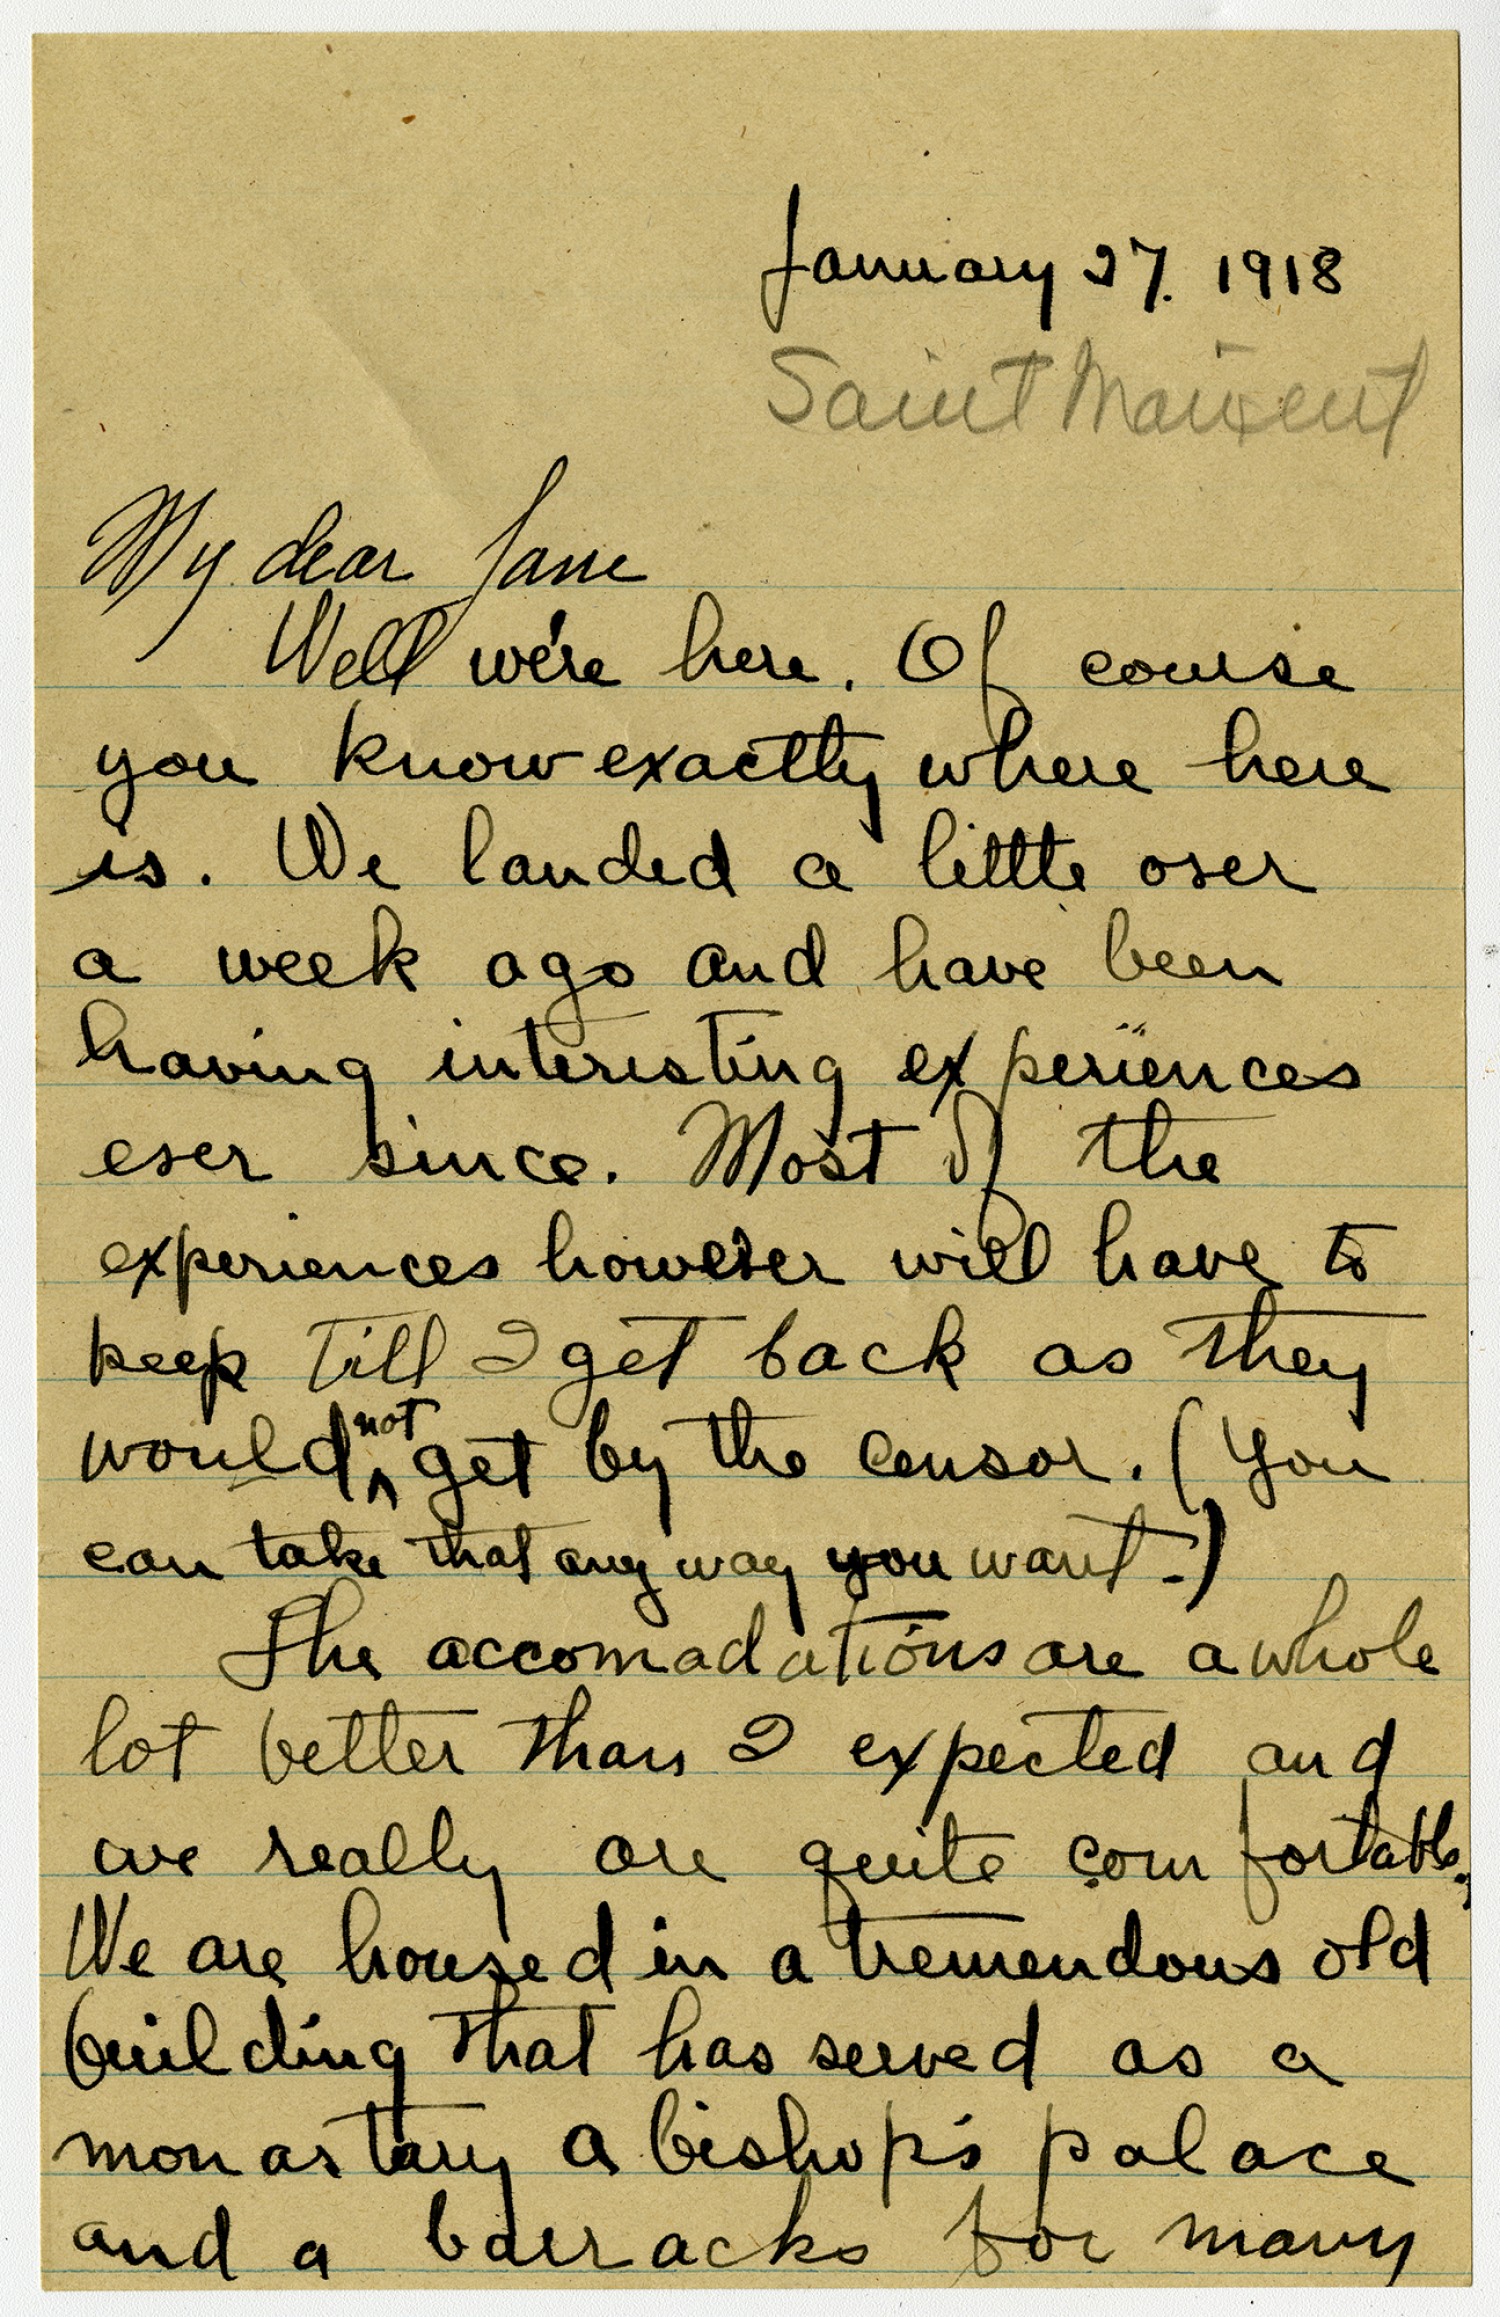 January 27. 1918
Saint Maixent
My dear Jane
Well we're here. Of course
you know exactly where here
is. We landed a little over
a week ago and have been
having interesting experiences
ever since. Most of the
experiences however will have to
keep till I get back as they
would not get by the censor. (You
can take that any way you want.)
The accomadations are a whole
lot better than I expected and
we really are quite comfortable.
We are housed in a tremendous old
building that has served as a
monastary a bishop's palace
and a barracks for many